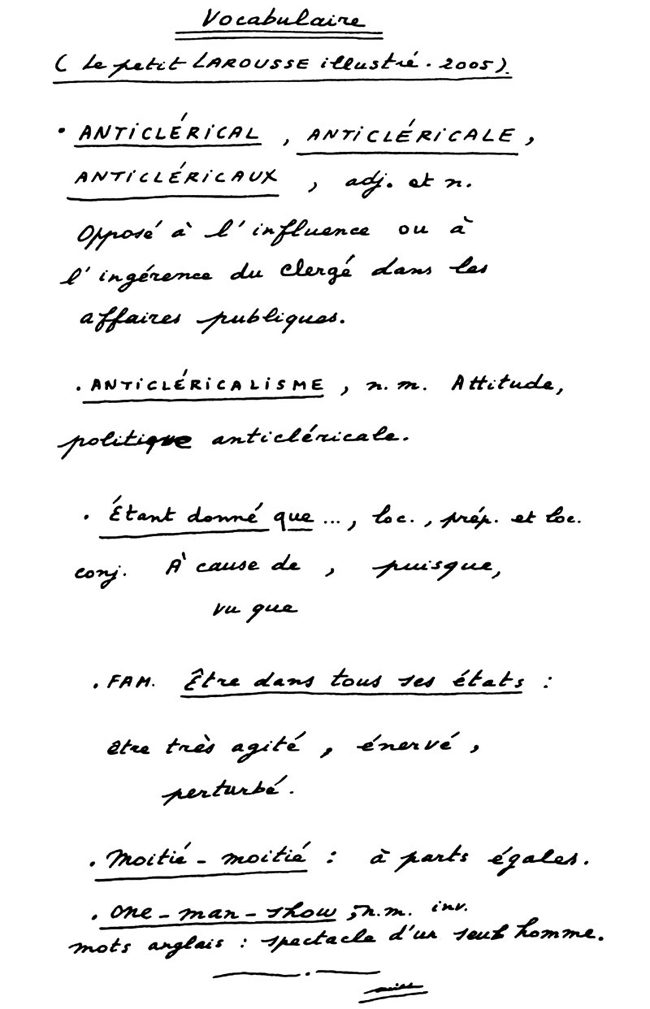 Vocabulaire
( Le petit LAROUSSE illustré. 2005).
• ANTICLÉRICAL, ANTICLÉRICALE,
ANTICLÉRICAUX, adj. et n.
Opposé à l'influence ou à
l'ingérence du clergé dans les
affaires publiques.
. ANTICLÉRICALISME, n.m. Attitude,
politique anticléricale.
. Étant donné que ..., loc., prép. et loc.
conj. À cause de, puisque,
vu que
. FAM. Être dans tous ses états :
être très agité, énervé,
perturbé.
. Moitié - moitié : à parts égales.
. One - man - show, n.m. inv.
mots anglais : spectacle d'un seul homme.